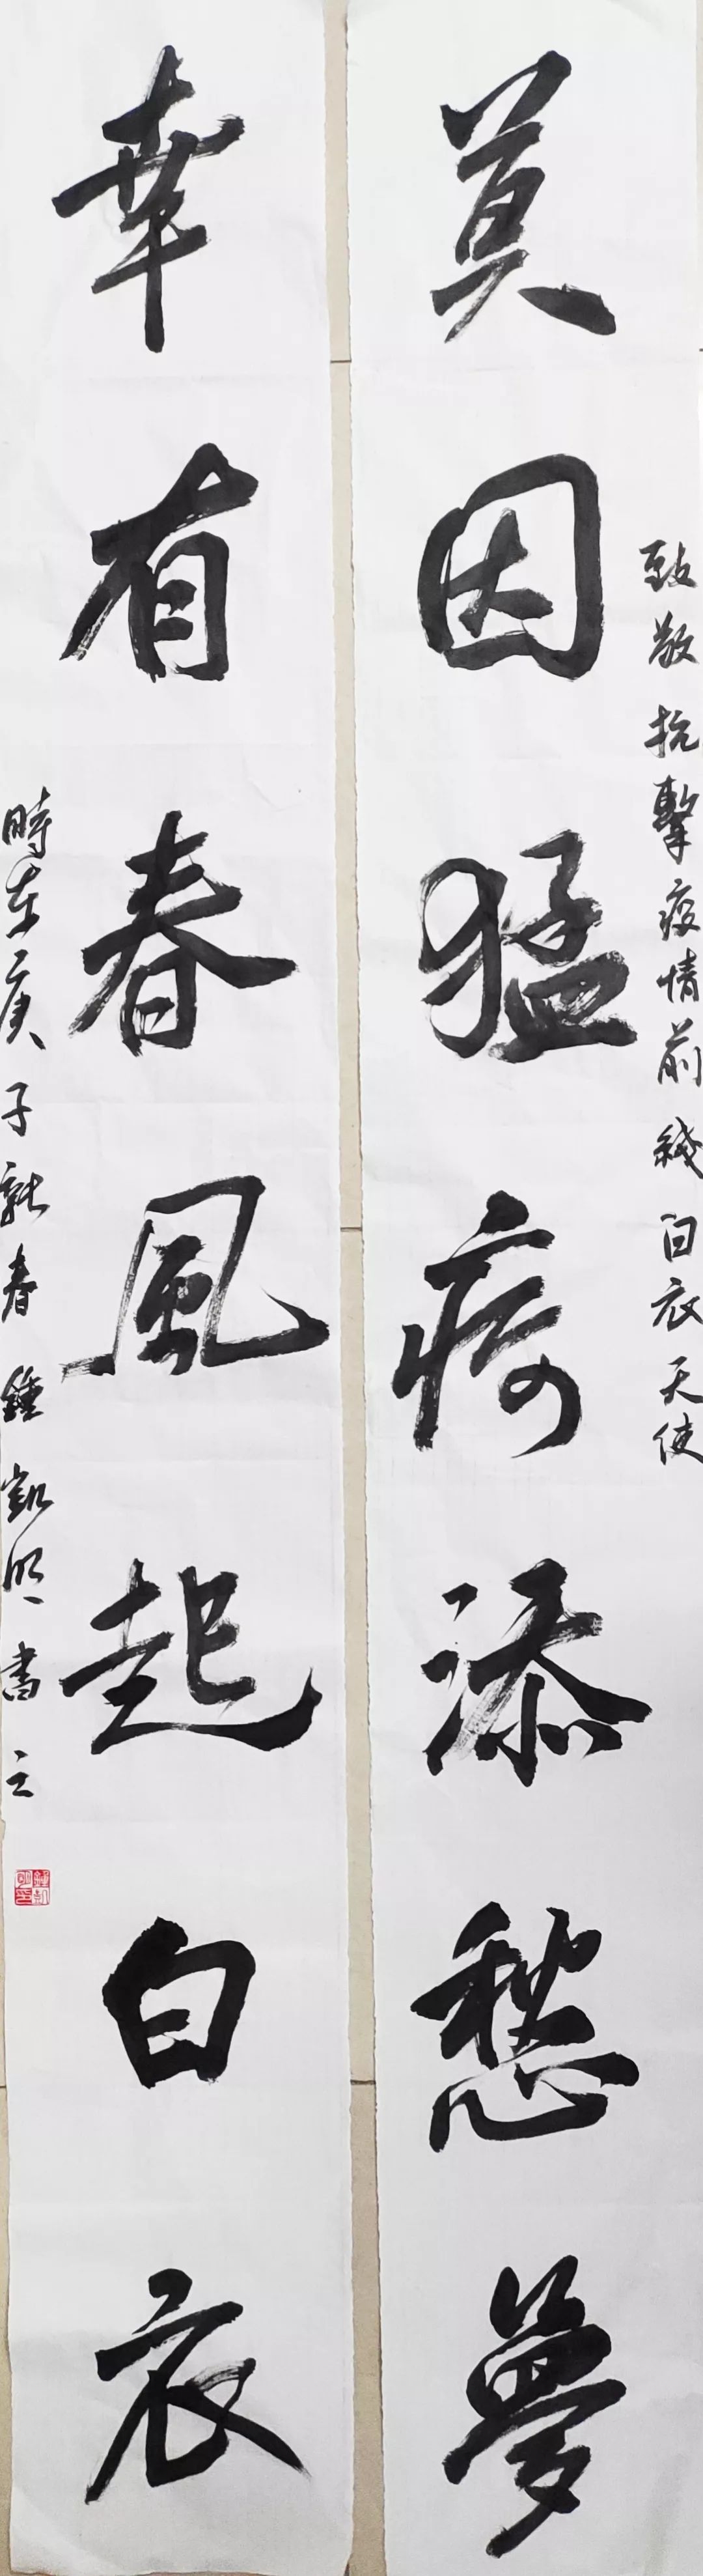 致敬抗擊疫情前綫白衣天使
莫因猛疫添愁夢
幸有春風起白衣
時在庚子新春鍾凱明書之